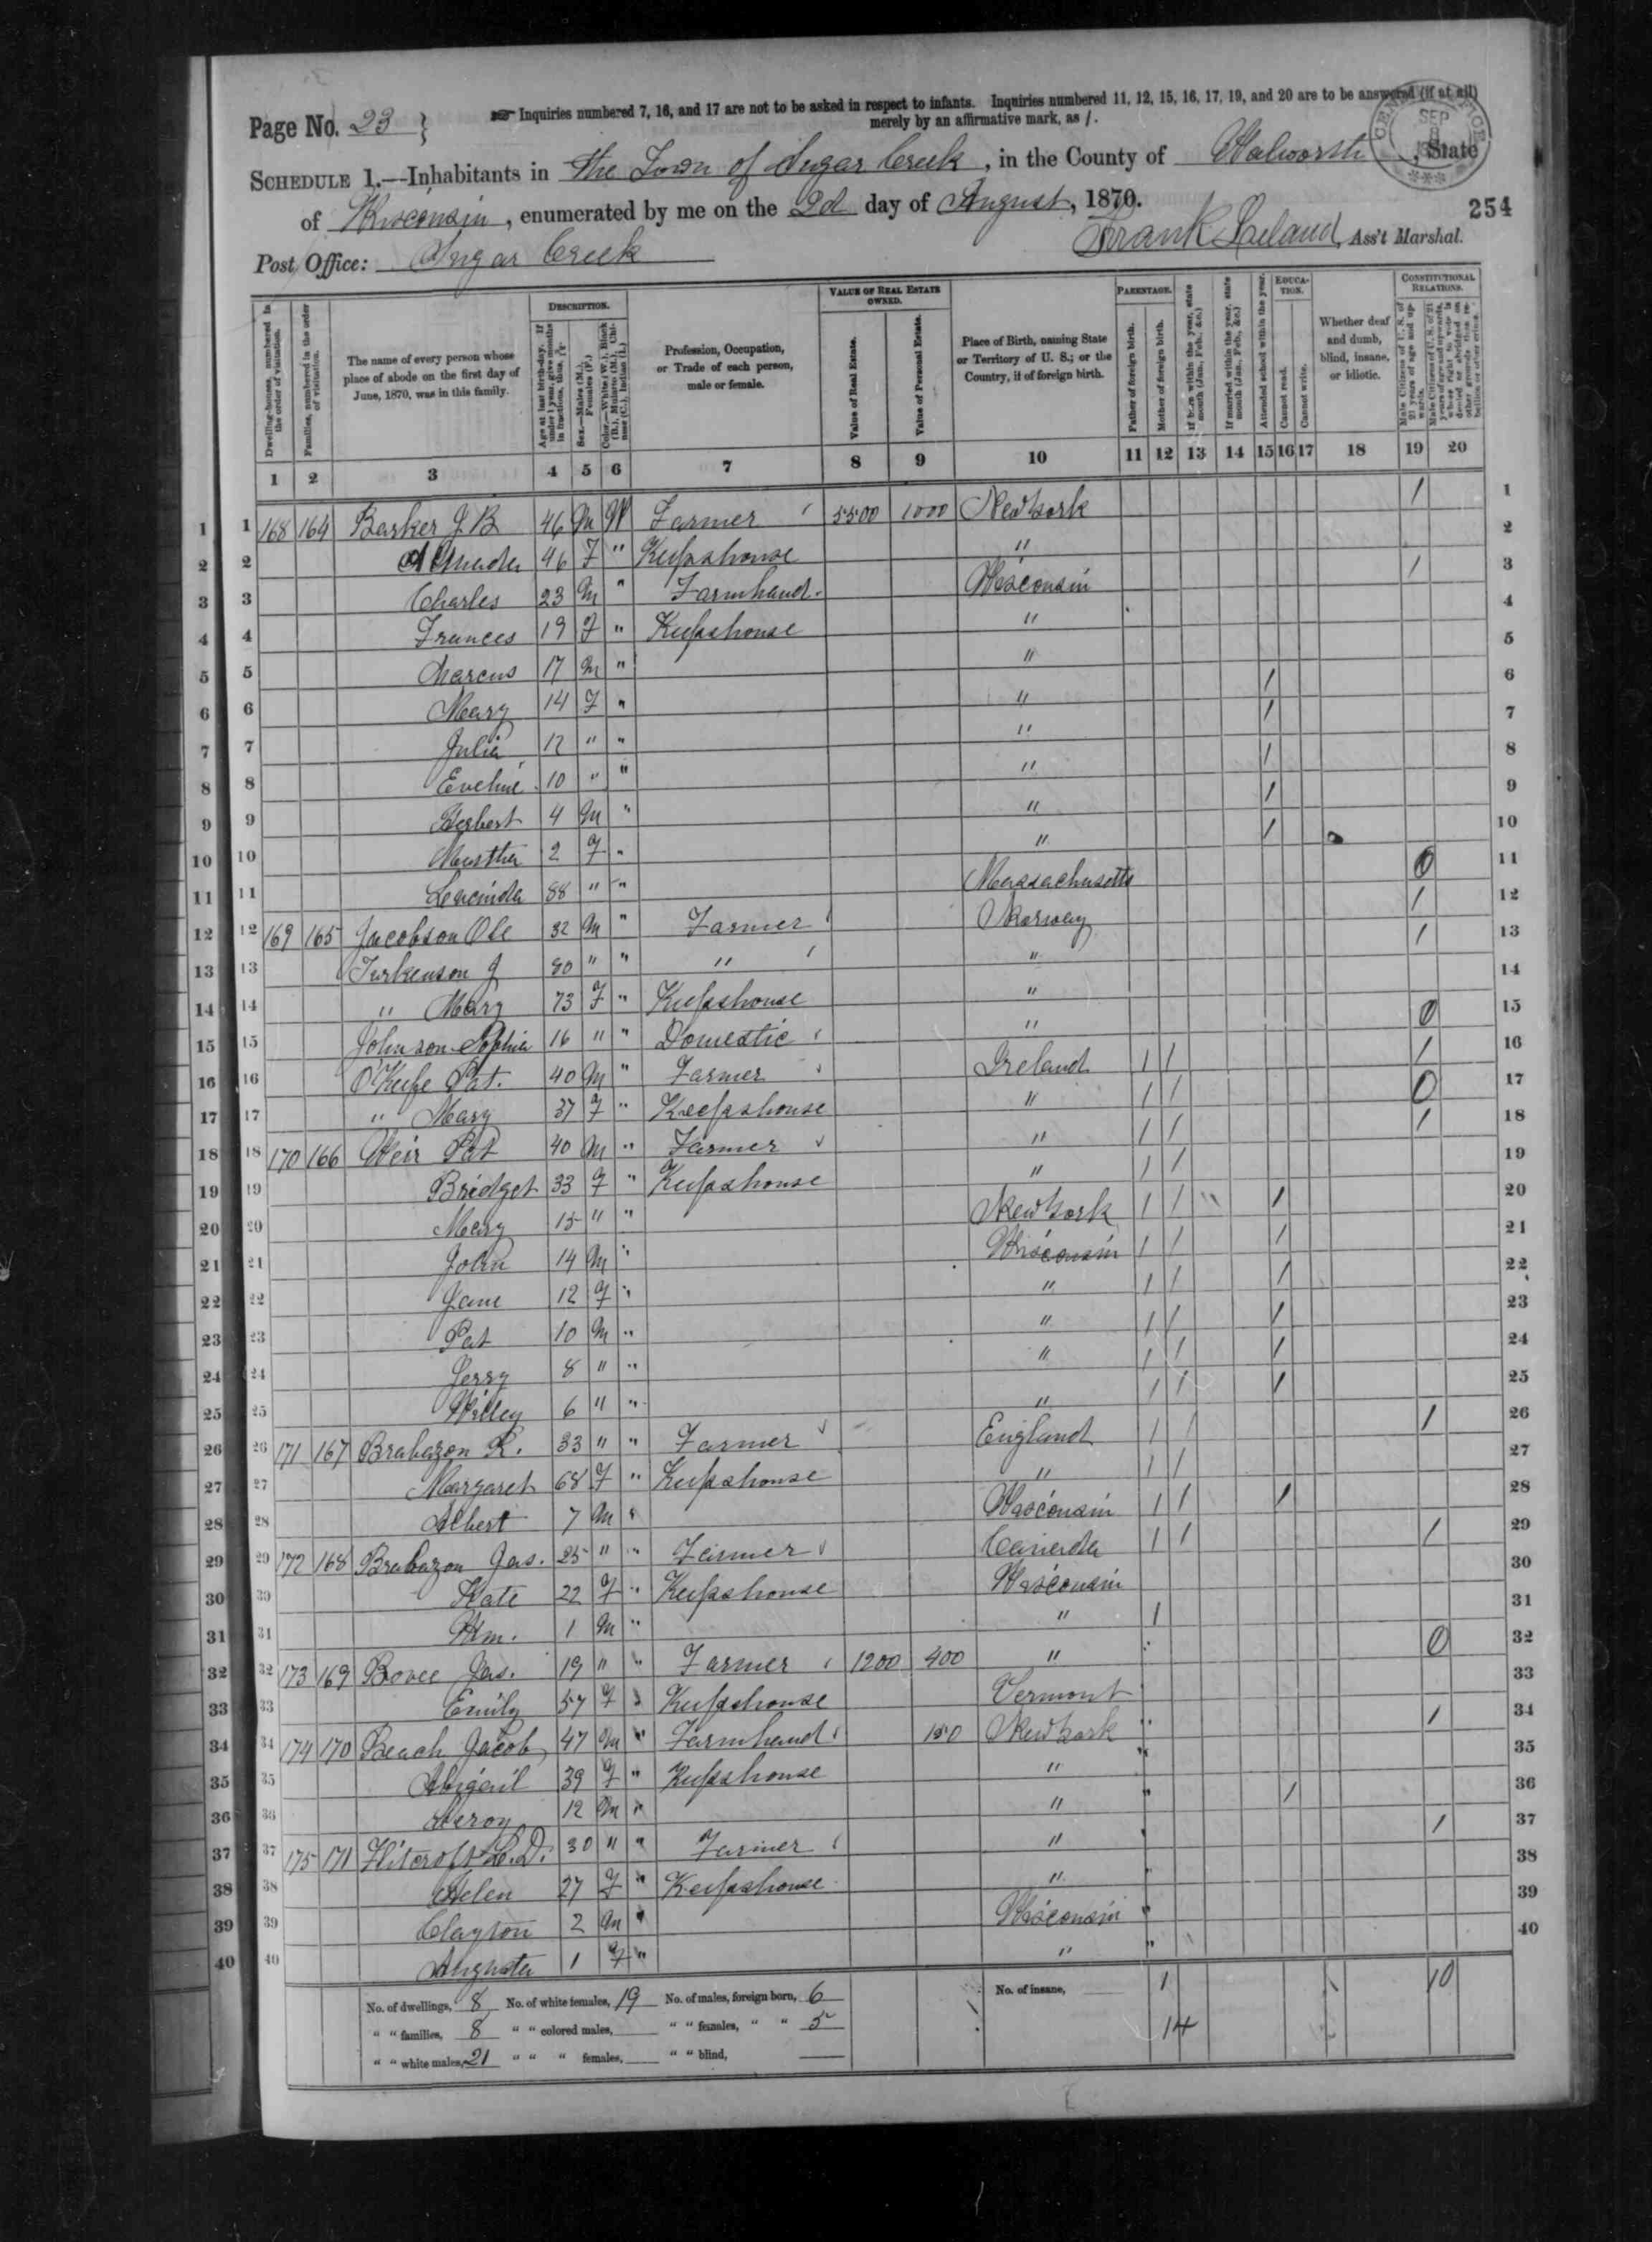 Page No. 23 }
Inquiries numbered 7, 16, and 17 are not to be asked in respect to infants. Inquiries numbered 11, 12, 15, 16, 17, 19, and 20 are to be answered (if at all)
merely by an affirmative mark, as /.
SCHEDULE 1.—Inhabitants in The Town of Sugar Creek, in the County of Walworth, State
of Wisconsin, enumerated by me on the 2d day of August, 1870.
254
Post Office: Sugar Creek
Frank Leland, Ass't Marshal.
SEP 8
Dwelling-houses, numbered in the order of visitation.
Families, numbered in the order of visitation.
The name of every person whose place of abode on the first day of June, 1870, was in this family.
DESCRIPTION.
Age at last birth-day. If under 1 year, give months in fractions, thus,
Sex.—Males (M.), Females (F.)
Color.—White (W.), Black (B.), Mulatto (M.), Chinese (C.), Indian (I.)
Profession, Occupation, or Trade of each person, male or female.
VALUE OF REAL ESTATE OWNED.
Value of Real Estate.
Value of Personal Estate.
Place of Birth, naming State or Territory of U. S.; or the Country, if of foreign birth.
PARENTAGE.
Father of foreign birth.
Mother of foreign birth.
If born within the year, state month (Jan., Feb., &c.)
If married within the year, state month (Jan., Feb., &c.)
Attended school within the year.
EDUCATION.
Cannot read.
Cannot write.
Whether deaf and dumb, blind, insane, or idiotic.
CONSTITUTIONAL RELATIONS.
Male Citizens of U. S. of 21 years of age and upwards.
Male Citizens of U. S. of 21 years of age and upwards, whose right to vote is denied or abridged on other grounds than rebellion or other crime.
1 2 3 4 5 6 7 8 9 10 11 12 13 14 15 16 17 18 19 20
1 168 164 Barker J B 46 M W Farmer 5500 1000 New York /
2 46 F " Keepshouse "
3 Charles 23 M " Farmhand Wisconsin /
4 Frances 19 F " Keepshouse "
5 Marcus 17 M " "
6 Mary 14 F " " /
7 Julia 12 " " " /
8 Eveline 10 " " " /
9 Herbert 4 M " " /
10 Martha 2 F " " /
11 Lucinda 88 " " Massachusetts 0
12 169 165 Jacobson Ole 32 M " Farmer Norway /
13 Turkenson J 80 " " " " /
14 " Mary 73 F " Keepshouse "
15 Johnson Sophia 16 " " Domestic " 0
16 O'Keefe Pat. 40 M " Farmer Ireland / / /
17 " Mary 37 F " Keepshouse " / / 0
18 170 166 Weir Pat 40 M " Farmer " / / /
19 Bridget 33 F " Keepshouse " / /
20 Mary 15 " " New York / / /
21 John 14 M " Wisconsin / / /
22 Jane 12 F " " / / /
23 Pat 10 M " " / / /
24 Jerry 8 " " " / / /
25 Willey 6 " " " / / /
26 171 167 Brabazon R. 33 " " Farmer England / / /
27 Margaret 68 F " Keepshouse " / /
28 Albert 7 M " Wisconsin / / /
29 172 168 Brabazon Jas. 25 " " Farmer Canada / / /
30 Kate 22 F " Keepshouse Wisconsin
31 Wm. 1 M " " /
32 173 169 Bovee Jas. 19 " " Farmer 1200 400 " 0
33 Emily 57 F " Keepshouse Vermont
34 174 170 Beach Jacob 47 M " Farmhand 150 New York /
35 Abigail 39 F " Keepshouse "
36 Leroy 12 M " " /
37 175 171 Flitcroft L. D. 30 " " Farmer " /
38 Helen 27 F " Keepshouse "
39 Clayton 2 M " Wisconsin
40 Augusta 1 F " "
No. of dwellings, 8 No. of white females, 19 No. of males, foreign born, 6 No. of insane, 1 10
" " families, 8 " " colored males, " " females, " " 5 14
" " white males, 21 " " " females, " " blind,